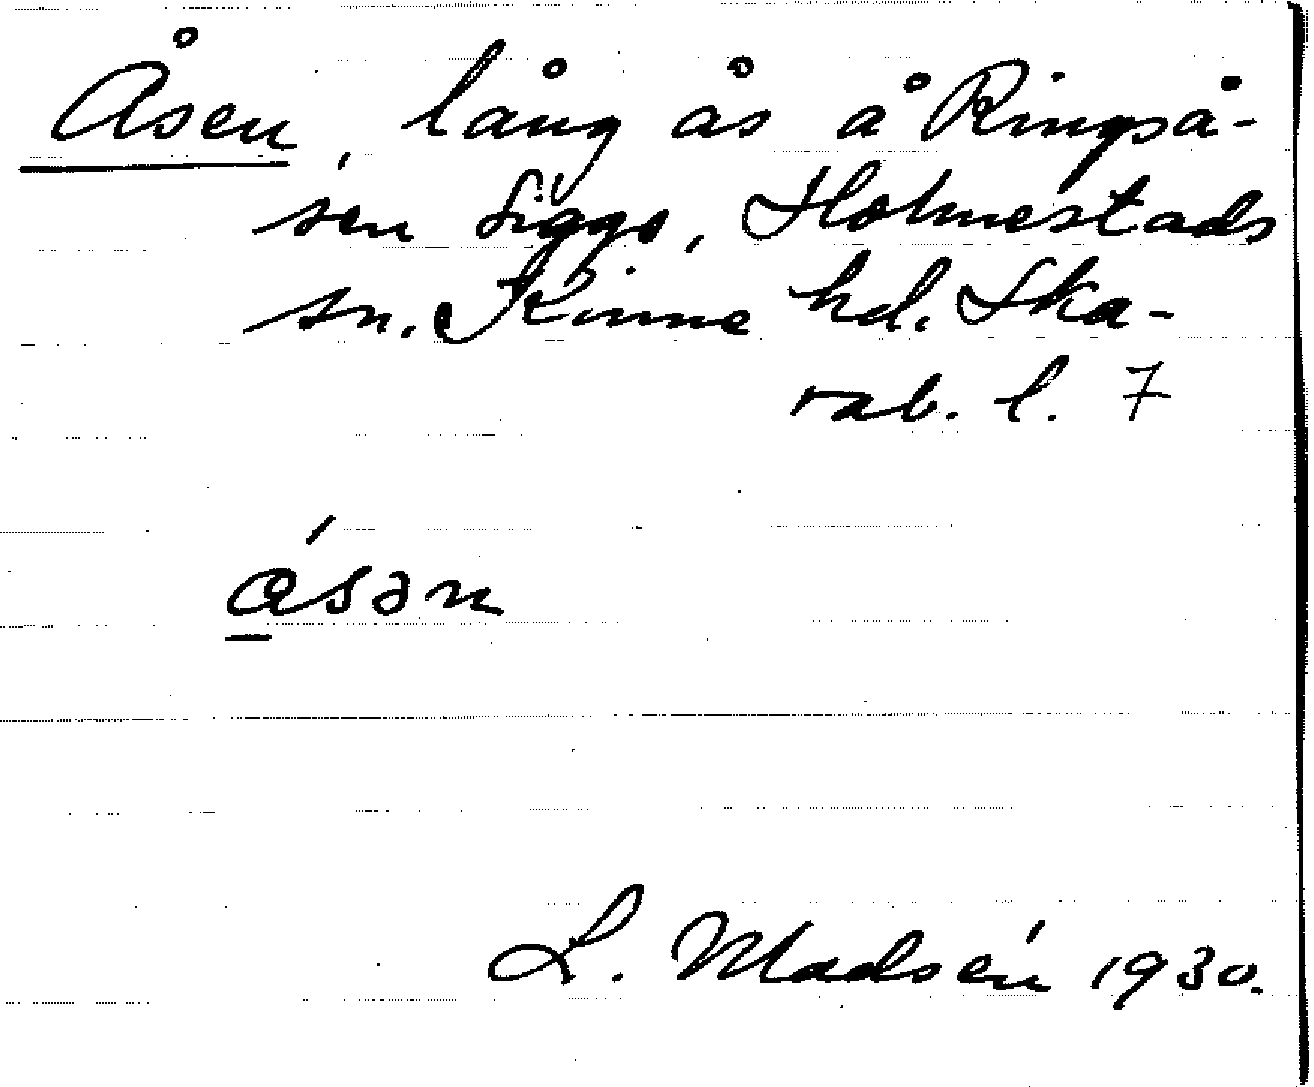 Åsen, lång ås å Ringså-
sen Siggo, Holmestads
sn. Kinne hd. Ska-
rab. l. 7
á̲sən
L. Madsén 1930.